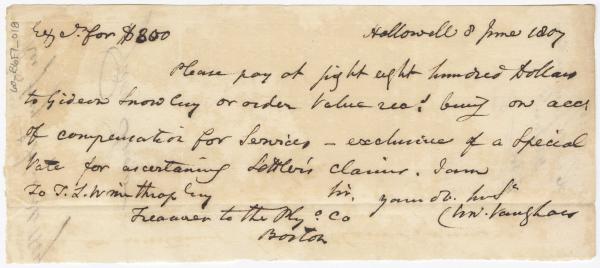 Exc. for $800 Hallowell 8 June 1807
Please pay at sight eight hundred Dollars
to Gideon Snow Esq or order Value rec.d being on acc.t
of compensation for Services – exclusive of a Special
Vote for ascertaining Settler's claims. I am
To T. L. Winthrop Esq Sir, your ob. Ser.t
Treasurer to the Ply.o Co Cha. Vaughan
Boston